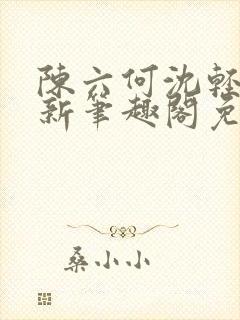 陳六何沈輕
新筆趣閣免
桑小小